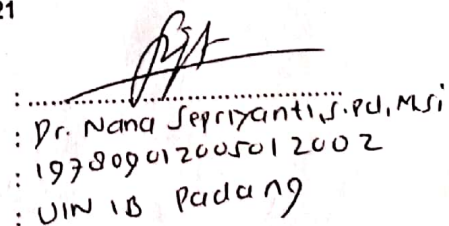 21
: ..............................................
: Dr. Nana Sepriyanti, S.Pd, M.Si
: 197809012005012002
: UIN IB Padang